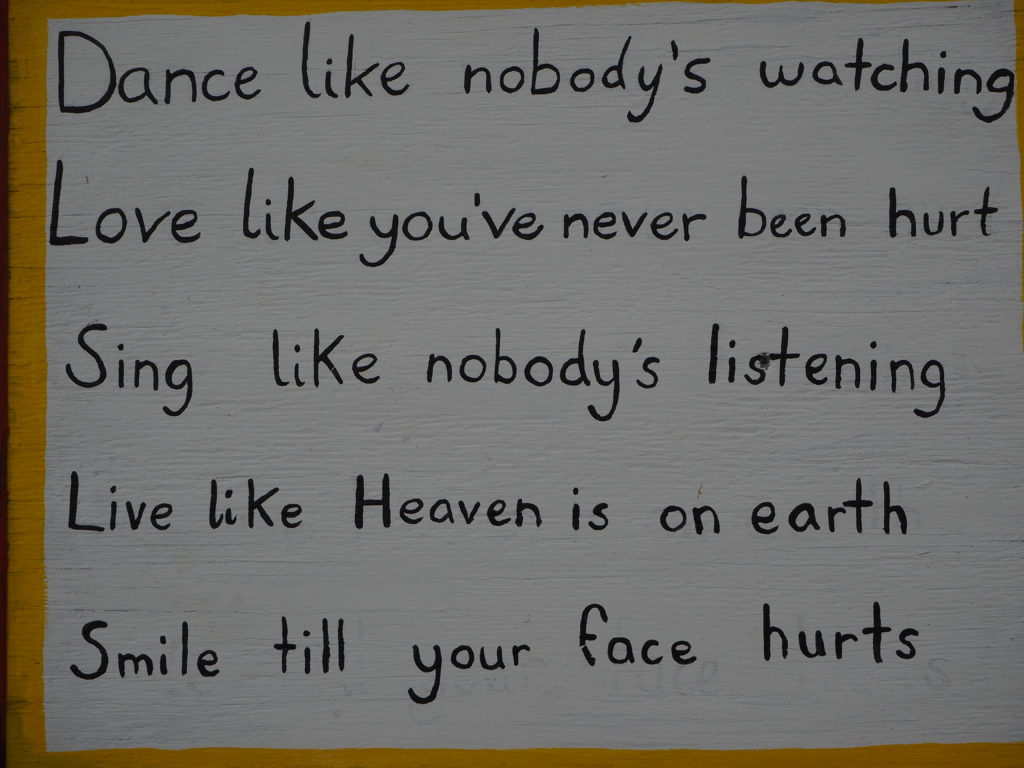 Dance like nobody's watching
Love like you've never been hurt
Sing like nobody's listening
Live like Heaven is on earth
Smile till your face hurts